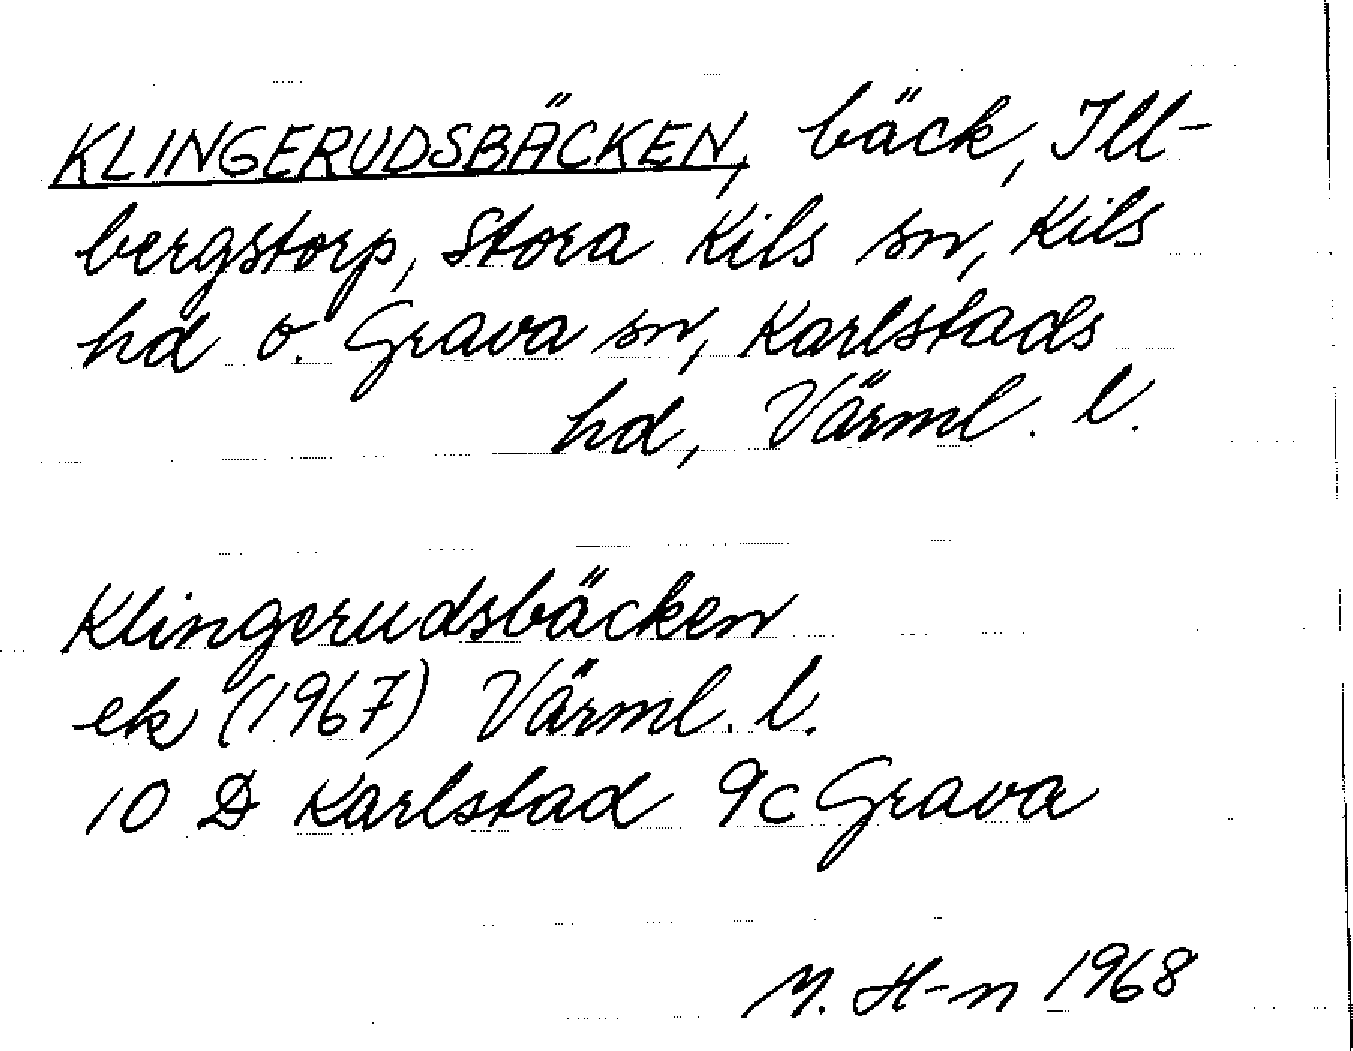 KLINGERUDSBÄCKEN, bäck, Ill-
bergstorp, Stora Kils sn, Kils
hd o. Grava sn, Karlstads
hd, Värml. l.
Klingerudsbäcken
ek (1967) Värml. l.
10 D Karlstad 9c Grava
M. H-n 1968